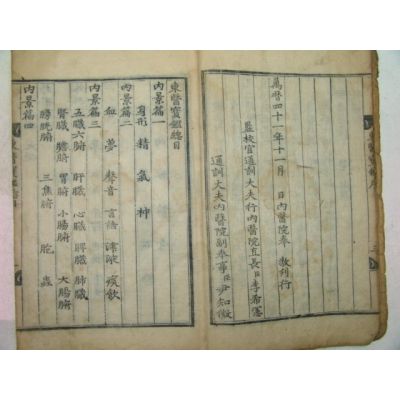 萬曆四十一年十一月 日內醫院奉 敎刊行
監校官通訓大夫行內醫院直長臣李希憲
通訓大夫內醫院副奉事臣尹知微
東醫寶鑑總目
內景篇一
身形 精 氣 神
內景篇二
血 夢 聲音 言語 津液 痰飮
內景篇三
五臟六腑 肝臟 心臟 脾臟 肺臟
腎臟 膽腑 胃腑 小腸腑 大腸腑
膀胱腑 三焦腑 胞 蟲
內景篇四